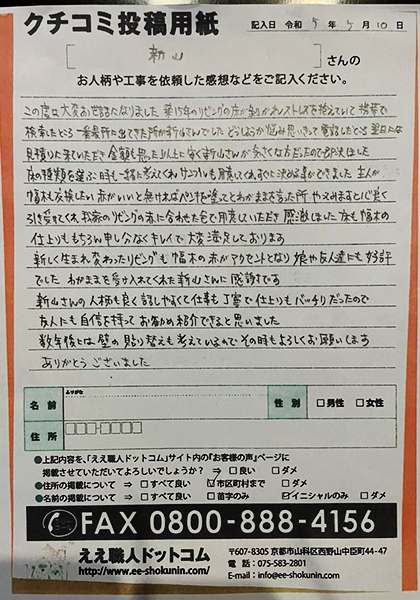 クチコミ投稿用紙
記入日 令和 5 年 5 月 10 日
新山 さんの
お人柄や工事を依頼した感想などをご記入ください。
この度は大変お世話になりました 築15年のリビングの床が剥がれストレスを抱えていて 携帯で
検索したところ 一番最初に出てきた所が新山さんでした どうしようか悩み思いきって電話したところ 翌日にな
見積りに来ていただき 金額も思ったより安く新山さんが気さくな方だったので即決しました
床の種類を選ぶ時も一緒に考えてくれ サンプルも用意してくれすぐに決める事ができました 主人が
幅木も交換したい 赤がいいと 無ければペンキを塗ってとわがままを言った所 心良く
引き受けてくれ 我家のリビングの赤に合わせた色で用意していただき 感激しました 床も幅木の
仕上りももちろん申し分なくキレイで大変満足しております
新しく生まれ変わったリビングも 幅木の赤がアクセントとなり 娘や友人達にも好評
でした わがままを受け入れてくれた新山さんに感謝です
新山さんの人柄も良く話しやすくて仕事も丁寧で仕上りもバッチリだったので
友人にも自信を持ってお勧め紹介できると思いました
数年後には壁の貼り替えも考えているのでその時もよろしくお願いします
ありがとうございました
ふりがな
名前 性別 □男性 □女性
住所 〒
●上記内容を、「ええ職人ドットコム」サイト内の『お客様の声』ページに
掲載させていただいてよろしいでしょうか? ⇒ □良い □ダメ
●住所の掲載について ⇒ □すべて良い ☑市区町村まで □ダメ
●名前の掲載について ⇒ □すべて良い □苗字のみ ☑イニシャルのみ □ダメ
FAX 0800-888-4156
ええ職人ドットコム
http://www.ee-shokunin.com/
〒607-8305 京都市山科区西野山中臣町44-47
電話：075-583-2801
E-mail：info@ee-shokunin.com